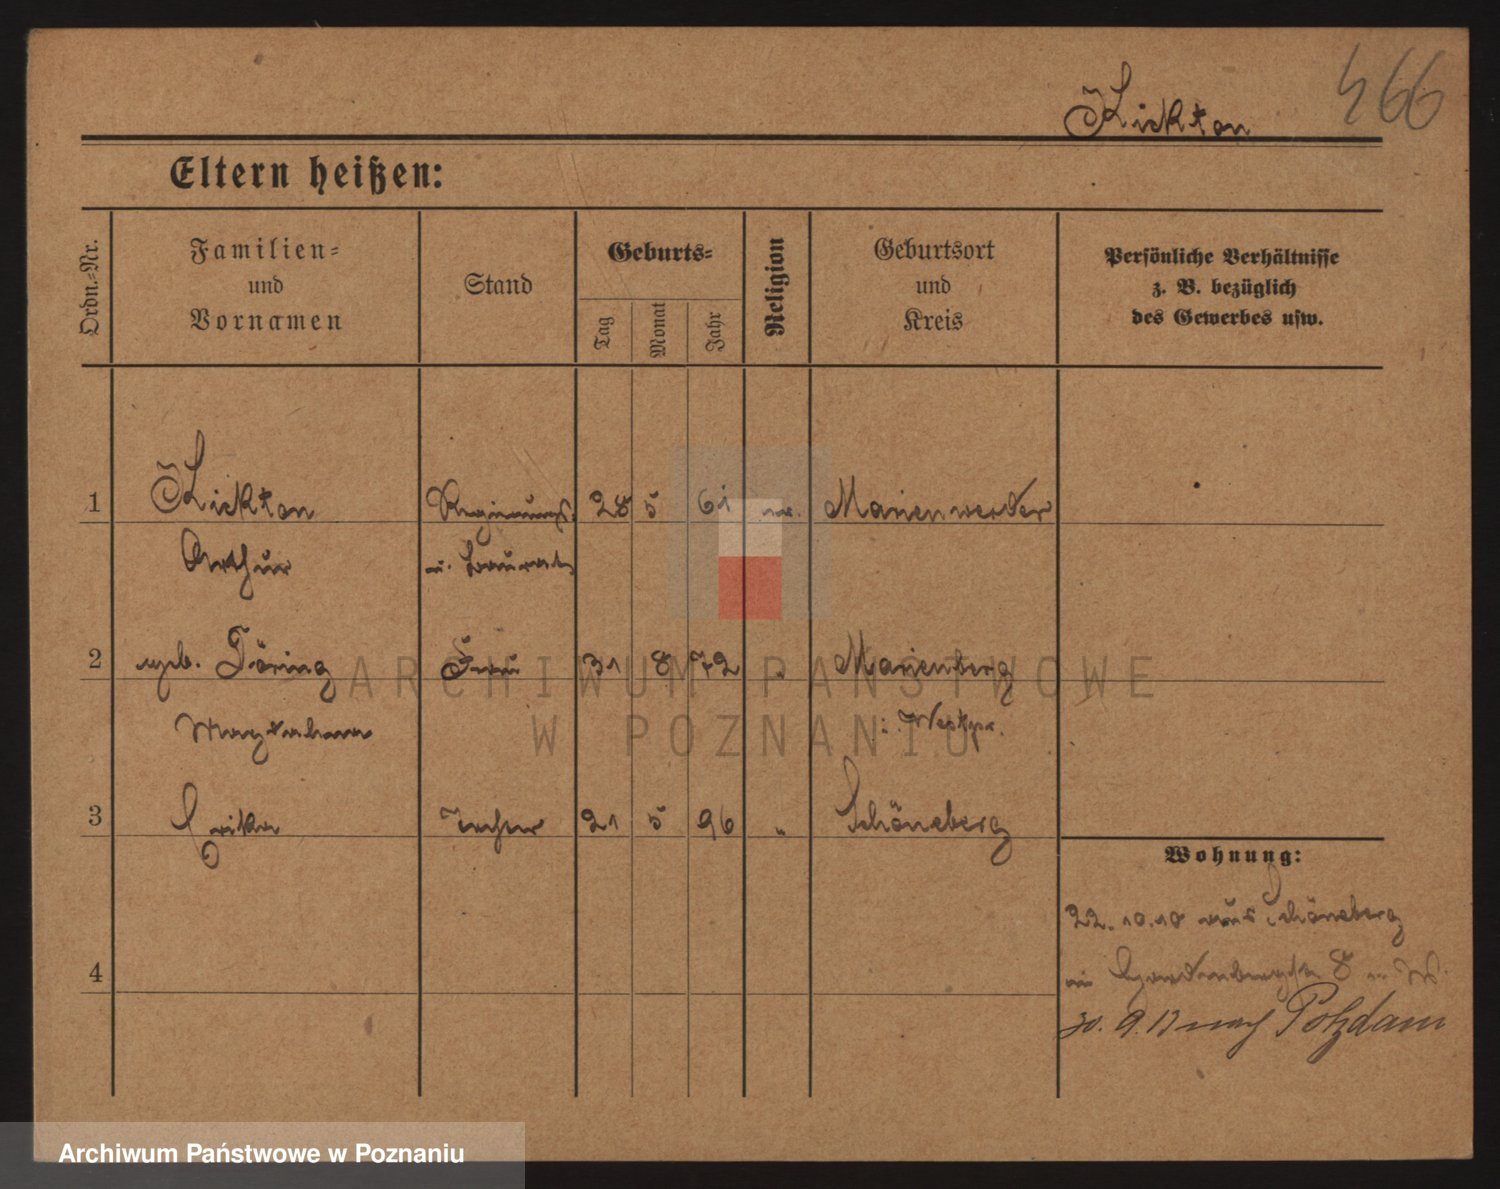 466
Kickton
Eltern heißen:
Ordn.=Nr.
Familien=
und
Vornamen
Stand
Geburts=
Tag
Monat
Jahr
Religion
Geburtsort
und
Kreis
Persönliche Verhältnisse
z. B. bezüglich
des Gewerbes usw.
1 Kickton Regierungs 28 5 61 ev. Marienwerder
Arthur u. Baurat
2 geb. Döring Frau 31 8 72 " Marienberg
Magdalena i. Westpr.
3 Erika Tochter 21 5 96 " Schöneberg
Wohnung:
22.10.10 aus Schöneberg
4
in Hardenbergstr 8 W.
30. 9. 13 nach Potzdam
ARCHIWUM PAŃSTWOWE
W POZNANIU
Archiwum Państwowe w Poznaniu